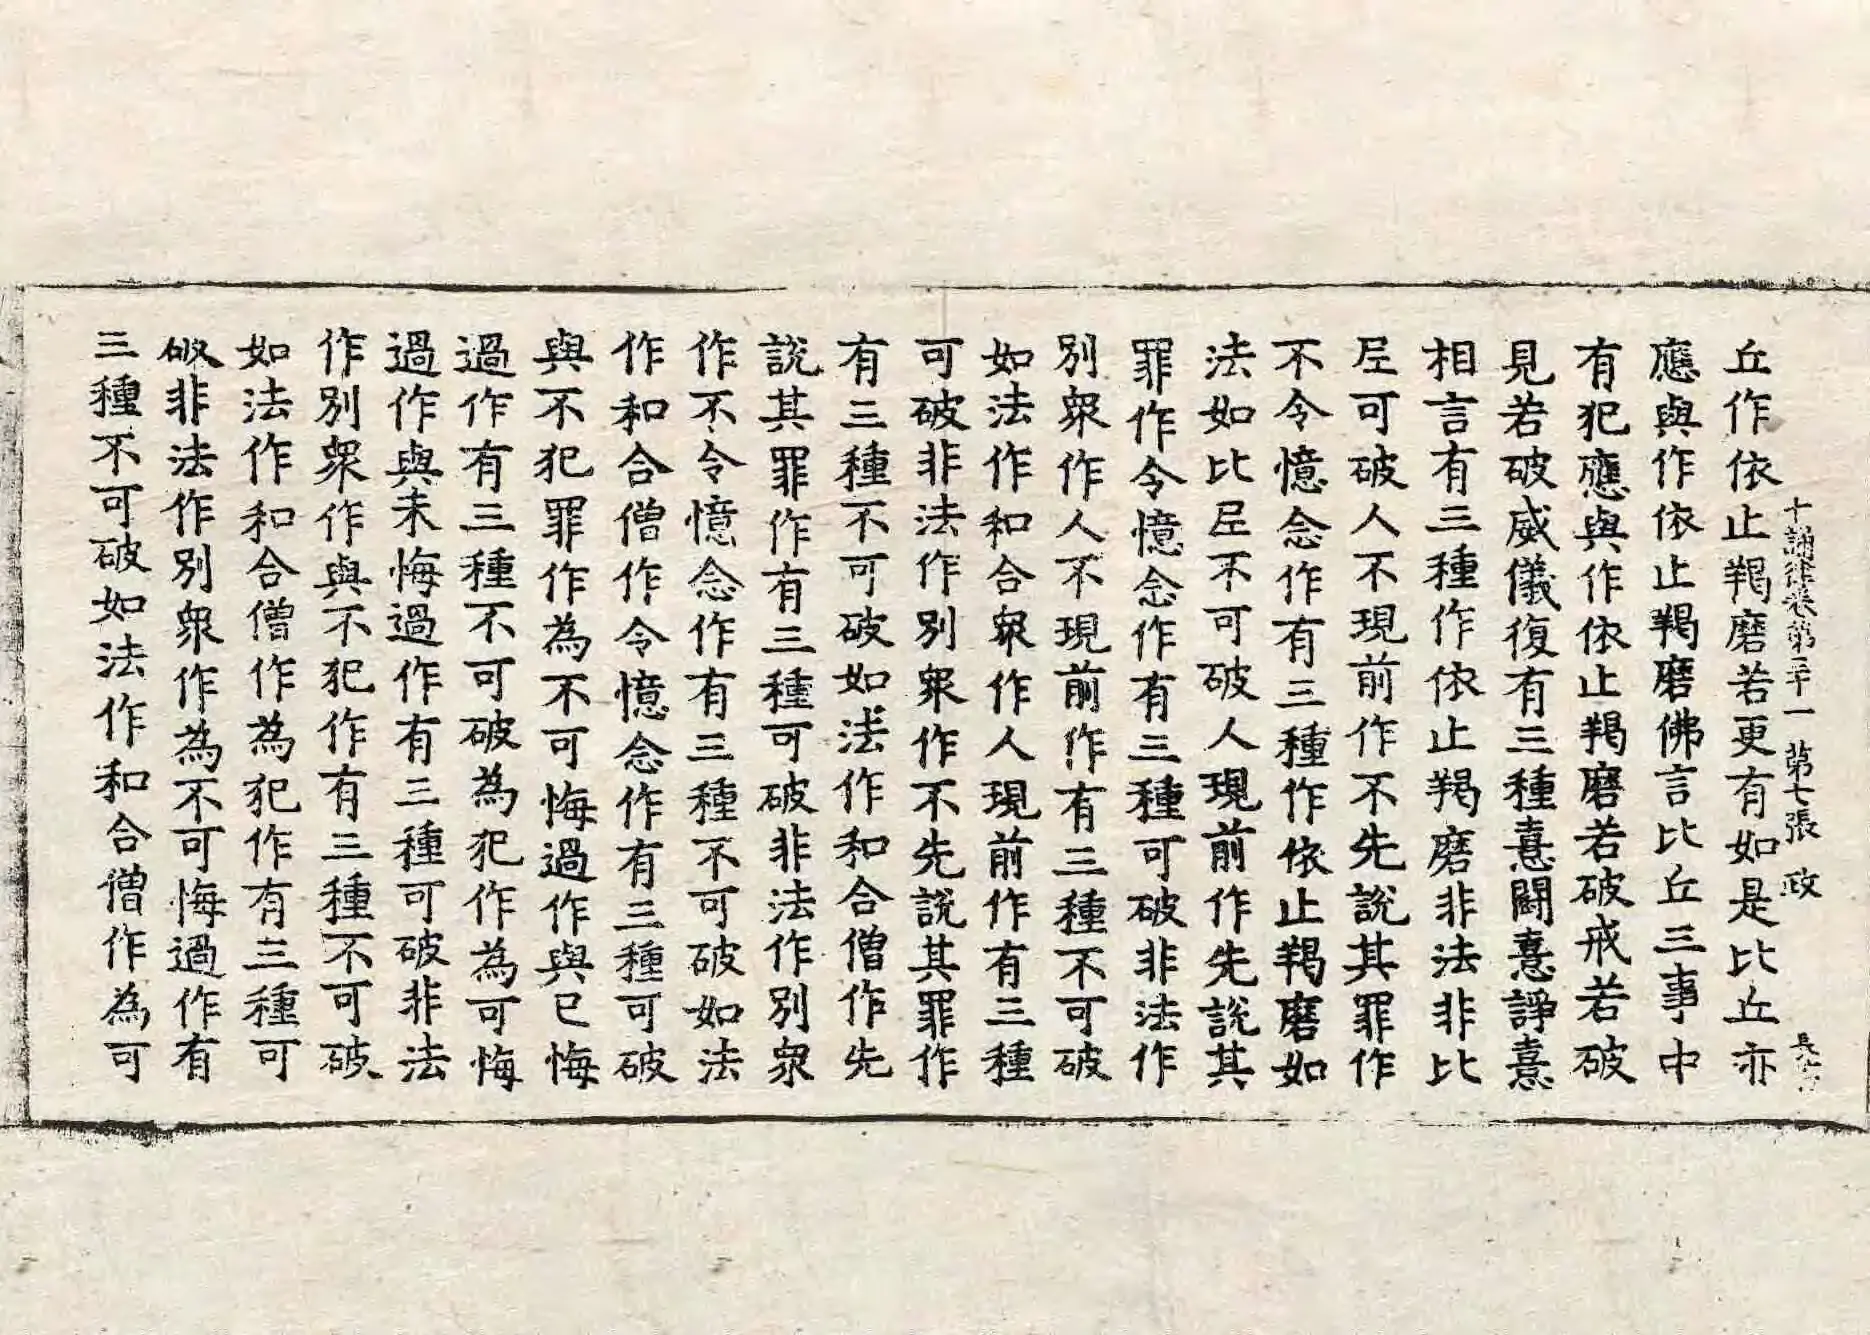 十誦律卷第三十一 第七張 政
丘作依止羯磨若更有如是比丘亦
應與作依止羯磨佛言比丘三事中
有犯應與作依止羯磨若破戒若破
見若破威儀復有三種憙鬪憙諍憙
相言有三種作依止羯磨非法非比
𡰱可破人不現前作不先說其罪作
不令憶念作有三種作依止羯磨如
法如比𡰱不可破人現前作先說其
罪作令憶念作有三種可破非法作
別衆作人不現前作有三種不可破
如法作和合衆作人現前作有三種
可破非法作別衆作不先說其罪作
有三種不可破如法作和合僧作先
說其罪作有三種可破非法作別衆
作不令憶念作有三種不可破如法
作和合僧作令憶念作有三種可破
與不犯罪作為不可悔過作與已悔
過作有三種不可破為犯作為可悔
過作與未悔過作有三種可破非法
作別衆作與不犯作有三種不可破
如法作和合僧作為犯作有三種可
破非法作別衆作為不可悔過作有
三種不可破如法作和合僧作為可